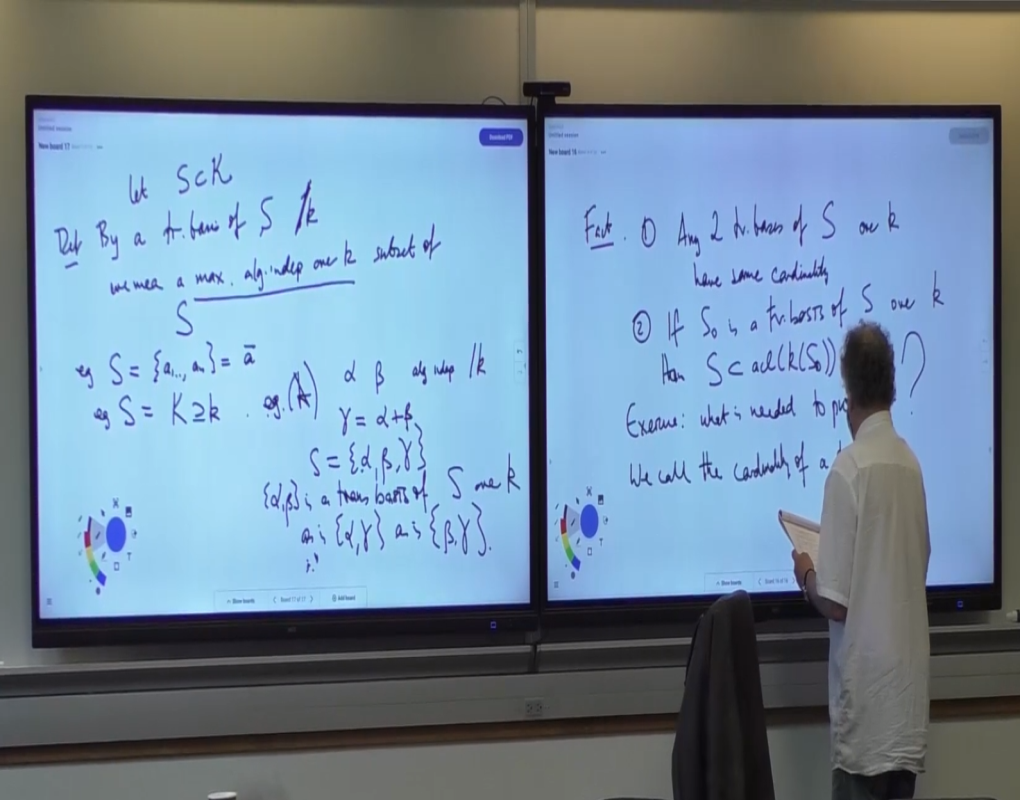 New board 17
Download PDF
let S⊂K
Def By a tr. basis of S /k
we mean a max. alg. indep over k subset of
S
eg S = {a₁,.., aₙ} = ā
eg S = K ≥ k . eg. (A) α β alg indep /k
γ = α+β
S = {α, β, γ}
{α,β} is a trans basis of S over k
as is {α,γ} as is {β,γ}.
Show boards
Board 17 of 17
Add board
New board 16
Fact. ① Any 2 tr. bases of S over k
have same cardinality
② If S₀ is a tr. basis of S over k
then S ⊂ acl(k(S₀)) ?
Exercise: what is needed to
We call the cardinality of a
Show boards